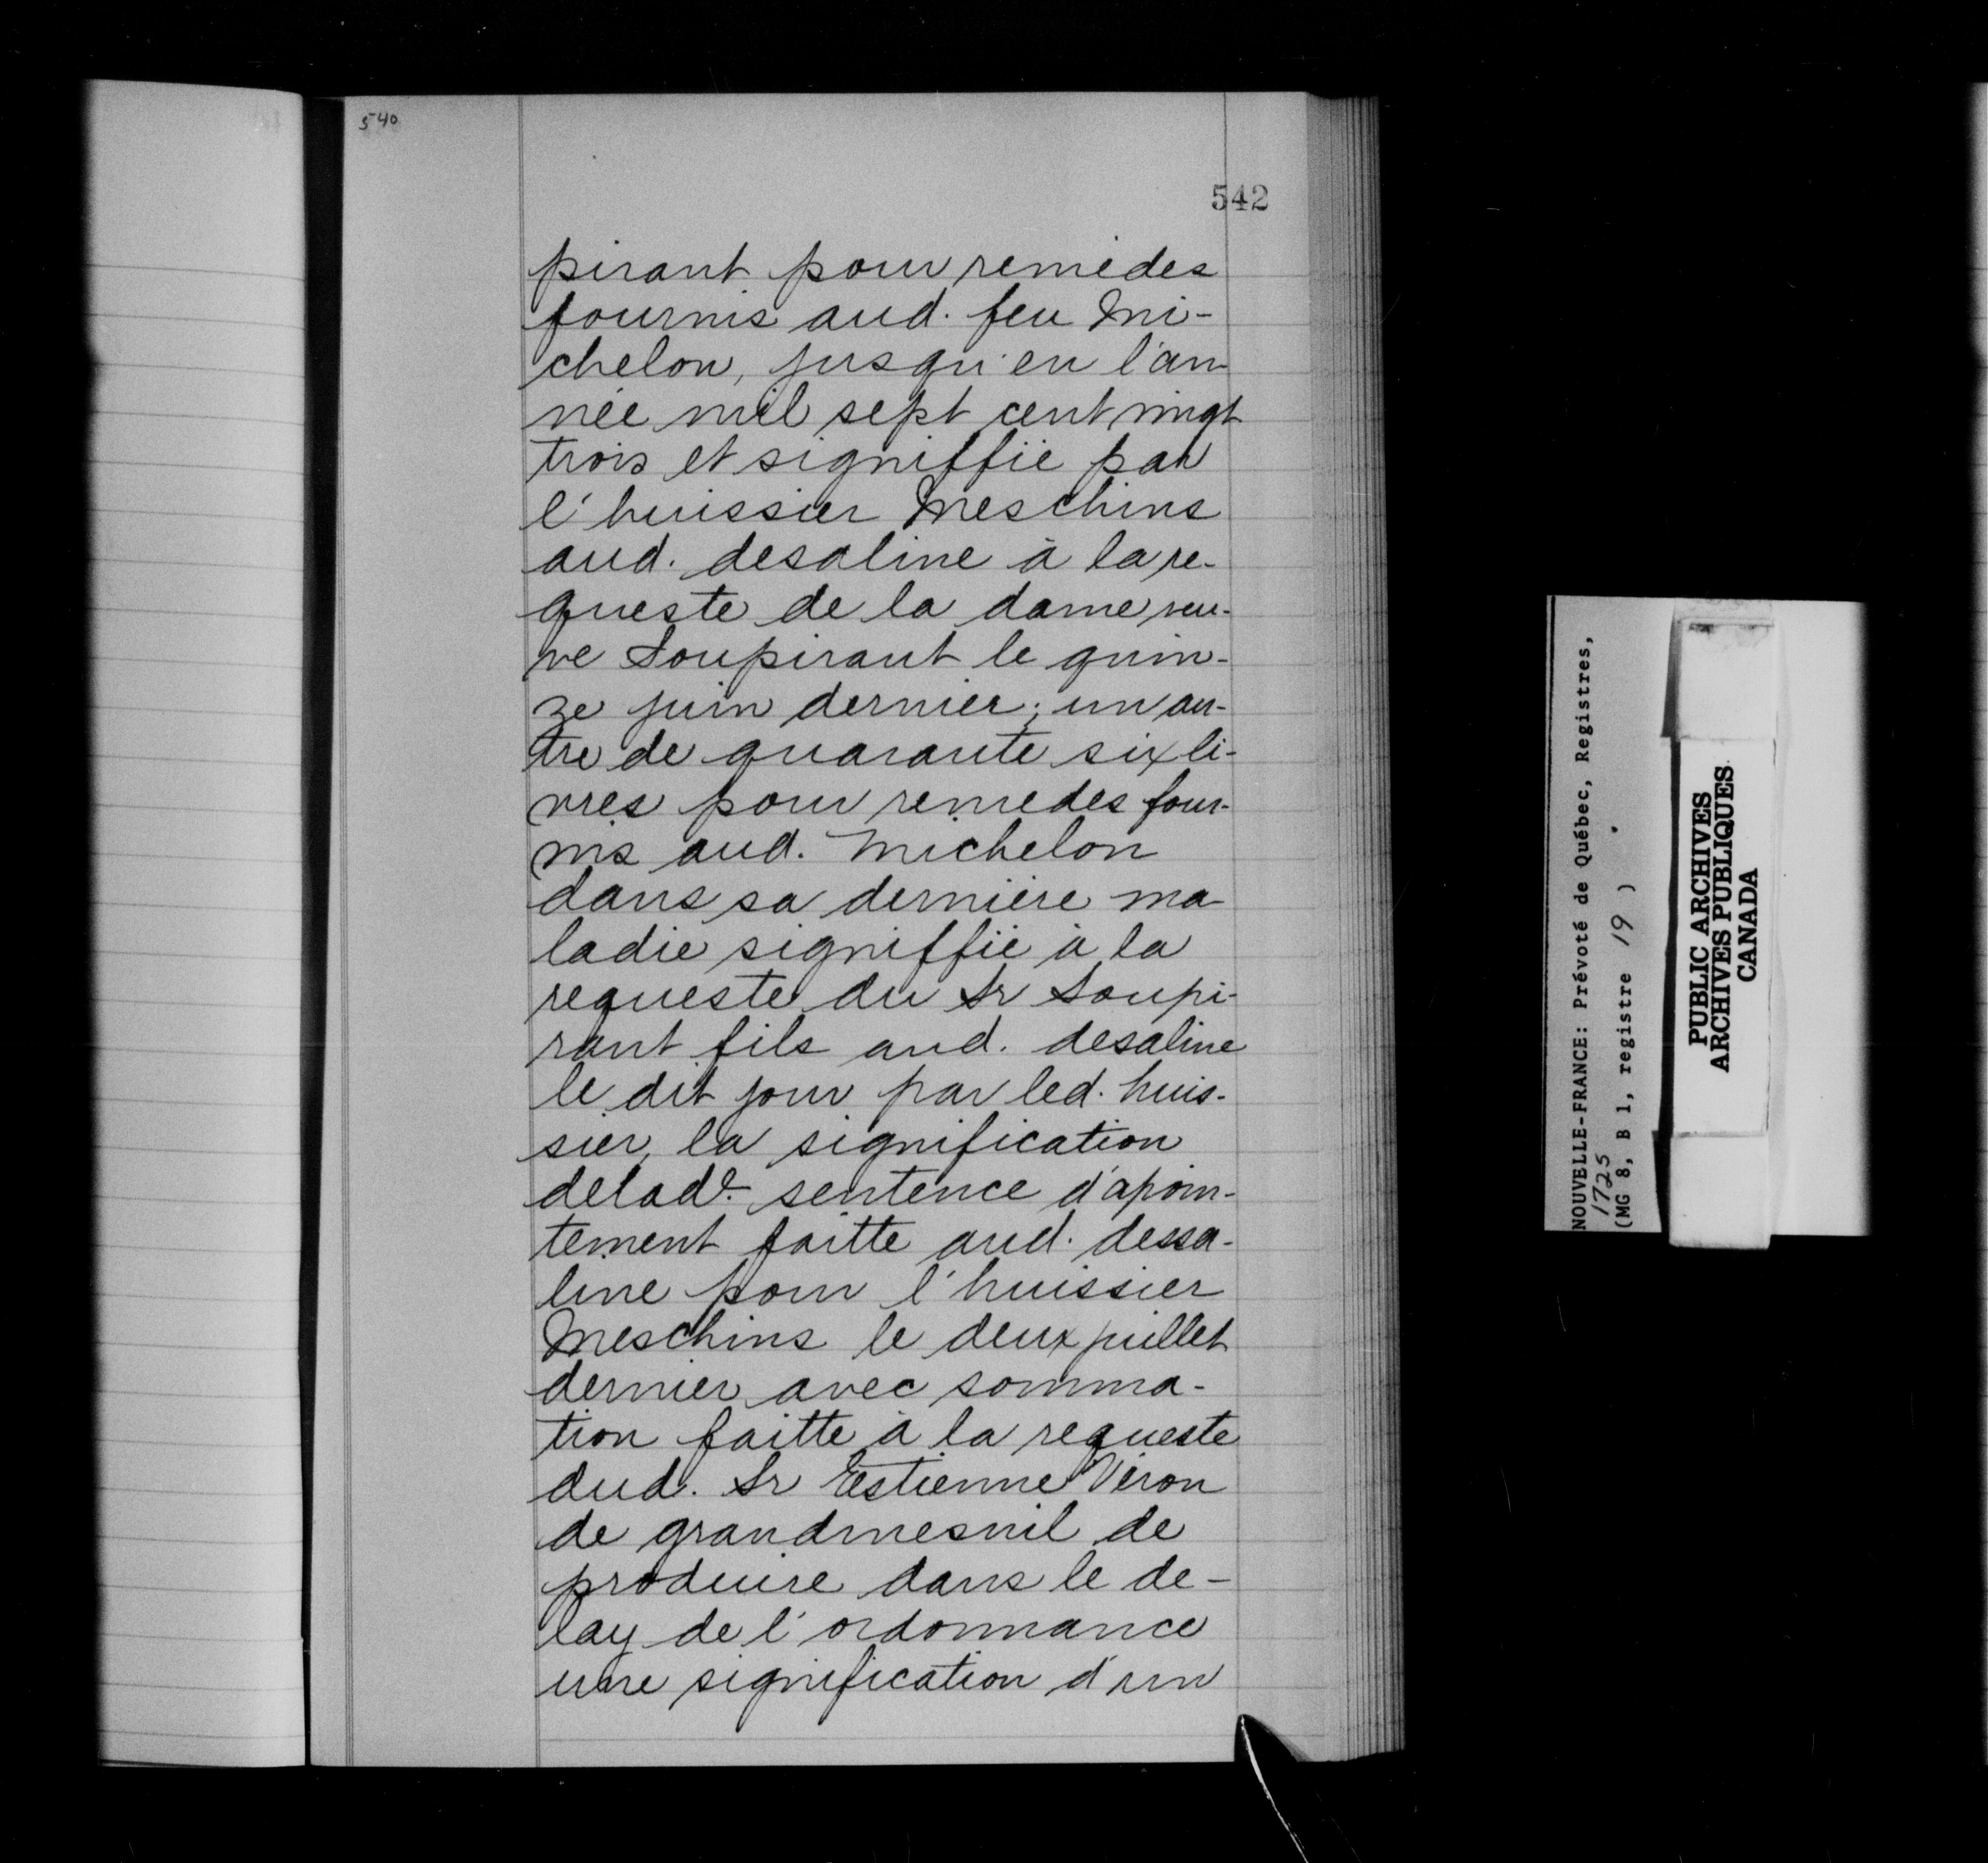 540
542
pirant pour remèdes
fournis aud. feu Mi-
chelon, jusqu'en l'an-
née mil sept cent vingt
trois et signiffié par
l'huissier Meschins
aud. desaline à la re-
queste de la dame veu-
ve Soupirant le quin-
ze juin dernier; un au-
tre de quarante six li-
vres pour remedes four-
nis aud. Michelon
dans sa dernière ma-
ladie signiffié à la
requeste du Sr Soupi-
rant fils aud. desaline
le dit jour par led. huis-
sier, la signification
delade. sentence d'apoin-
tement faitte aud. dessa-
line pour l'huissier
Meschins le deux juillet
dernier avec somma-
tion faitte à la requeste
dud. Sr Estienne Véron
de grandmesnil de
produire dans le de-
lay de l'ordonnance
une signification d'un
NOUVELLE-FRANCE: Prévoté de Québec, Registres,
1725
(MG 8, B 1, registre 19 )
PUBLIC ARCHIVES
ARCHIVES PUBLIQUES
CANADA